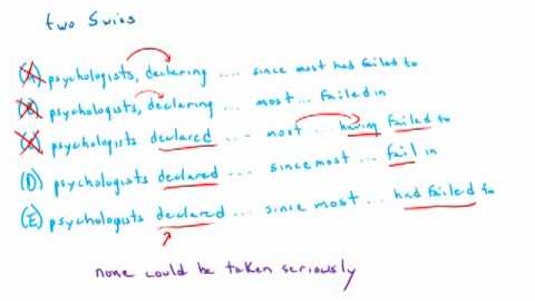 two Swiss
(A) psychologists, declaring .... since most had failed to
(B) psychologists, declaring .... most ... failed in
(C) psychologists declared ... most ... having failed to
(D) psychologists declared ... since most ... fail in
(E) psychologists declared ... since most ... had failed to
none could be taken seriously